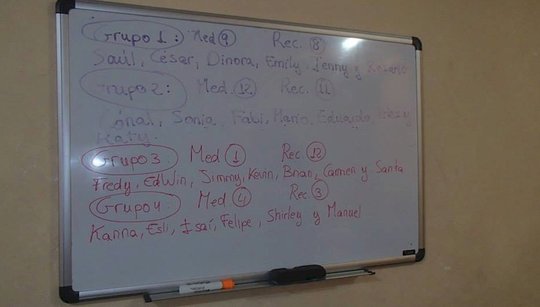 Grupo 1: Med 9 Rec. 8
Saúl, César, Dinora, Emily, Jenny y Rosario
Grupo 2: Med 12. Rec. 11
Sonia, Fabi, Mario, Eduardo,
Katy.
Grupo 3 Med 1 Rec 12
Fredy, Edwin, Jimmy, Kevin, Brian, Carmen y Santa
Grupo 4 Med 4 Rec. 3
Kanna, Esli, Isaí, Felipe, Shirley y Manuel